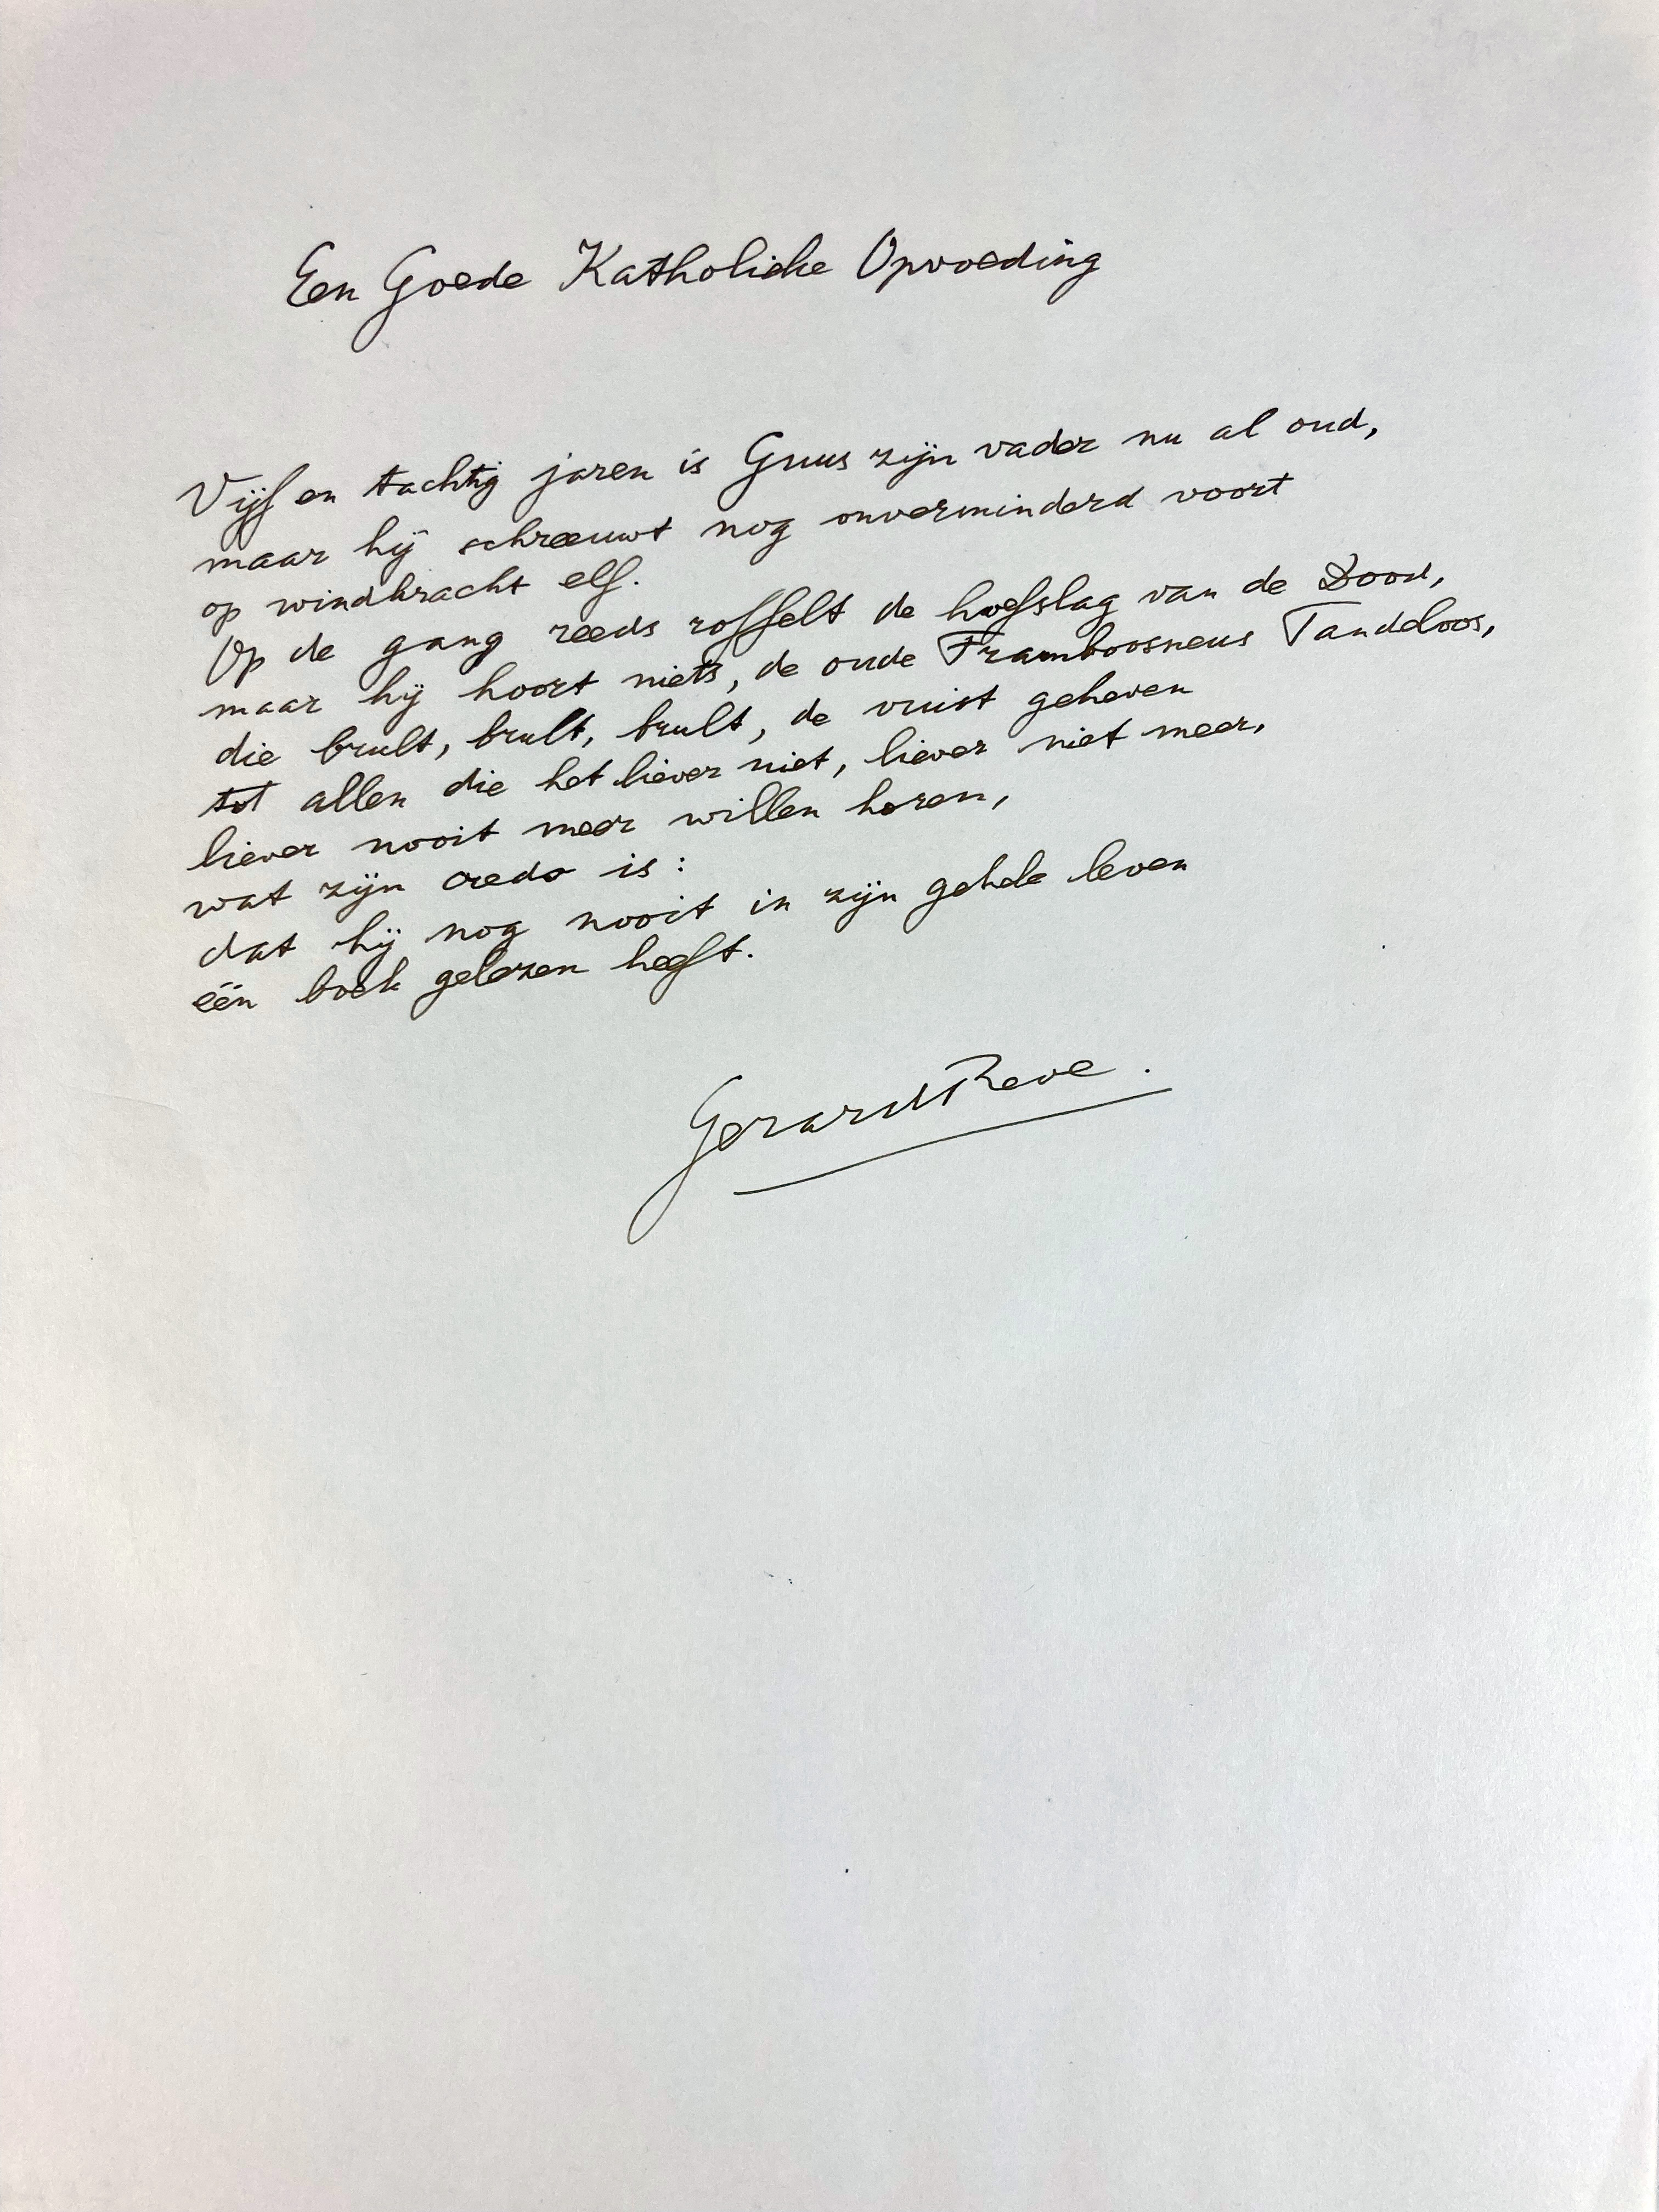 Een Goede Katholieke Opvoeding
Vijf en tachtig jaren is Guus zijn vader nu al oud,
maar hij schreeuwt nog onverminderd voort
op windkracht elf.
Op de gang reeds roffelt de hoefslag van de Dood,
maar hij hoort niets, de oude Framboosneus Tandeloos,
die brult, brult, brult, de vuist geheven
tot allen die het liever niet, liever niet meer,
liever nooit meer willen horen,
wat zijn credo is:
dat hij nog nooit in zijn gehele leven
één boek gelezen heeft.
Gerard Reve.